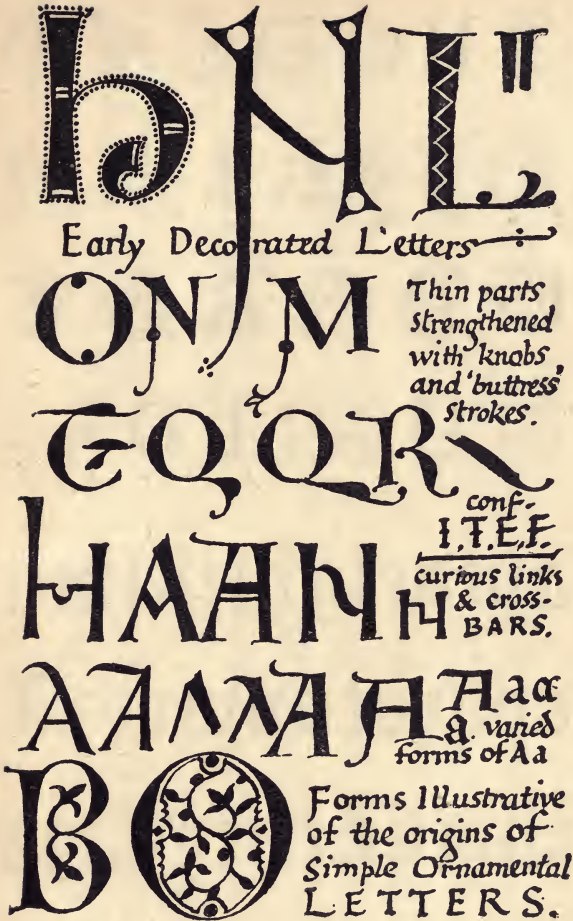 h N L
Early Decorated Letters
O N M
Thin parts
strengthened
with knobs,
and 'buttress'
strokes.
G Q Q R
conf-
I.T.E.F.
H A A N
curious links
N & cross-
BARS.
A A A A A A A a α
a varied
forms of Aa
B O
Forms Illustrative
of the origins of
Simple Ornamental
LETTERS.